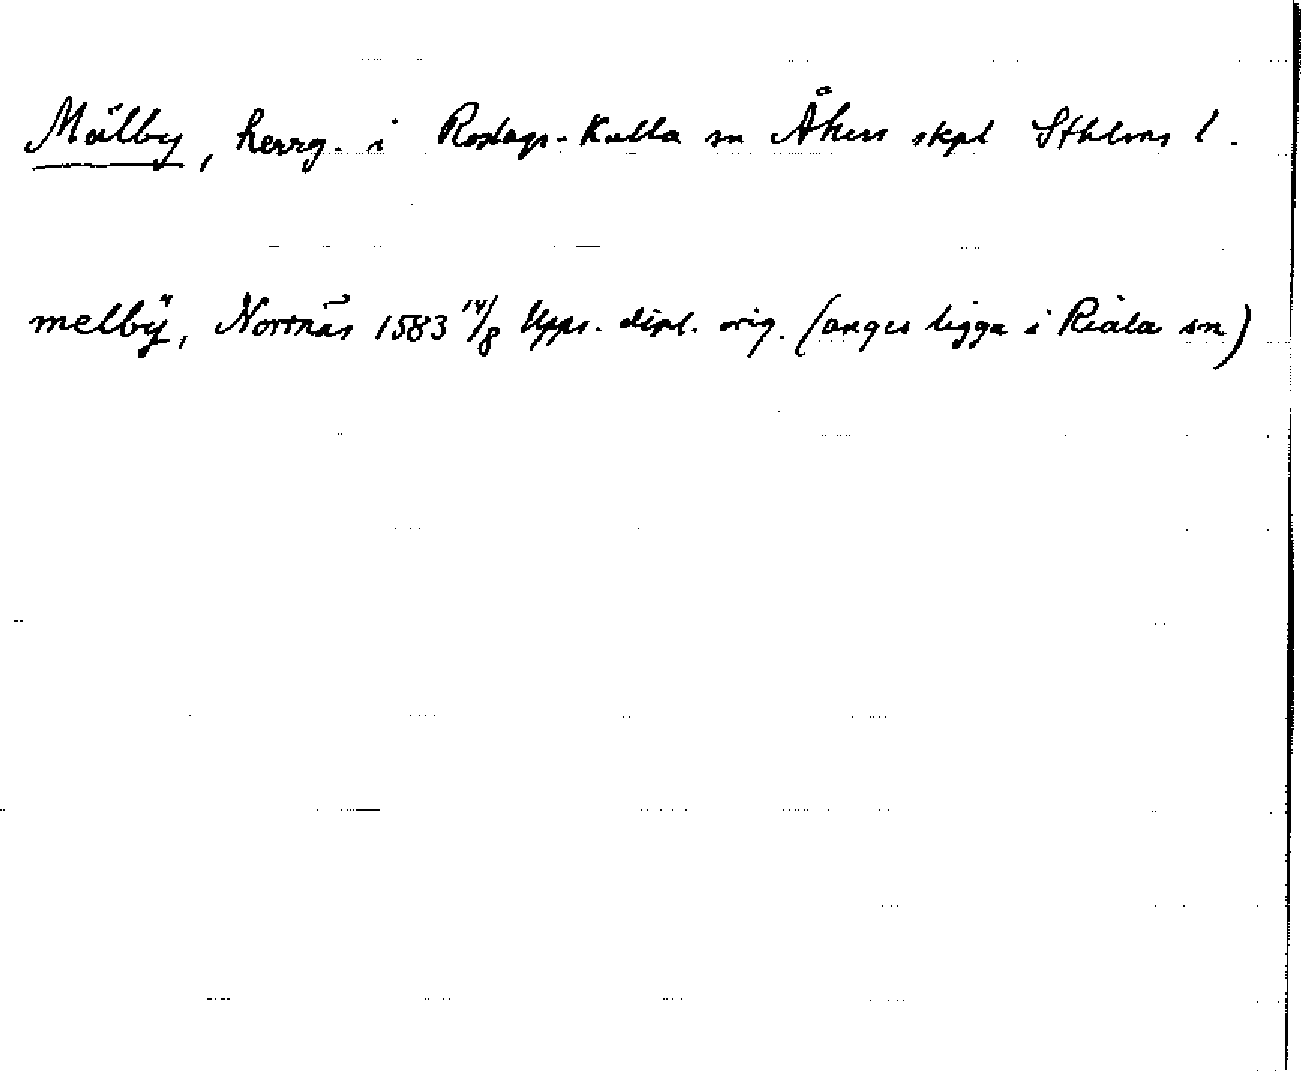 Mälby, herrg. i Roslags-Kulla sn Åkers skpl Sthlms l.
melbÿ, Norrnäs 1583 14/8 Upps. dipl. orig. (anges ligga i Riala sn)